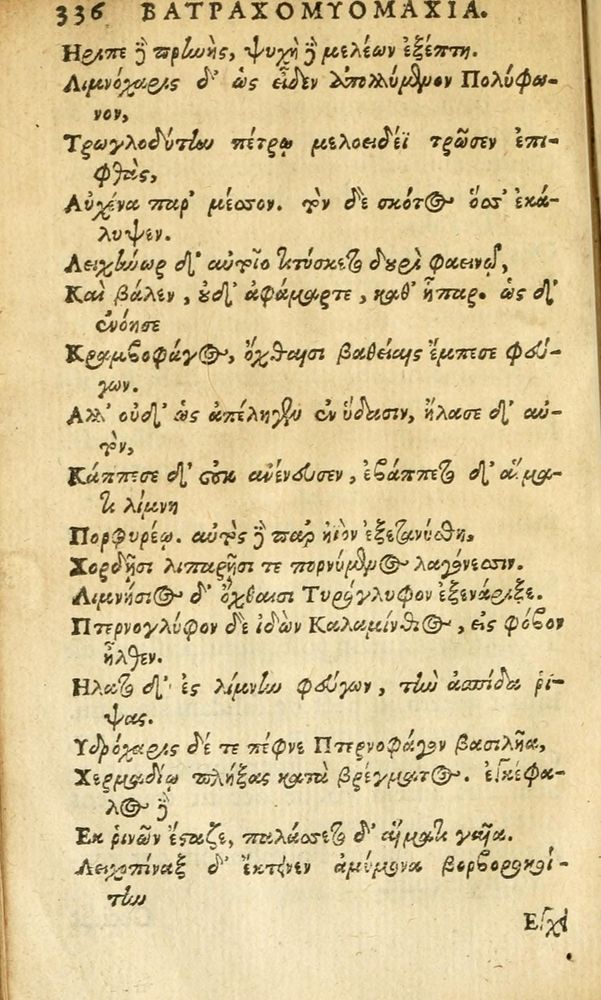 336 ΒΑΤΡΑΧΟΜΥΟΜΑΧΙΑ.
Ηριπε ἢ πρἰωὴς, ψυχὴ ἢ μελέων ἐξέπτη.
Λιμνόχαρις δ' ὡς εἶδεν ἀπολλύμθμον Πολύφω-
νον,
Τρωγλοδύτίω πέτρῳ μελοειδέϊ τρῶσεν ἐπι-
φθὰς,
Αὐχένα παρ' μέσσον. τὸν δὲ σκότος ὄσσ' ἐκά-
λυψεν.
Λειχίωωρ δ' αὐτοῖο τιτύσκετο δουρὶ φαεινῷ,
Καὶ βάλεν, οὐδ' ἀφάμαρτε, καθ' ἧπαρ. ὡς δ'
ἐνόησε
Κραμβοφάγος, ὄχθαισι βαθείαις ἔμπεσε φεύ-
γων.
Αλλ' οὐδ' ὡς ἀπέληγεν ἐν ὕδασιν, ἤλασε δ' αὐ-
τὸν,
Κάππεσε δ' οὐκ ἀνένευσεν, ἐβάπτετο δ' αἵμα-
τι λίμνη
Πορφυρέῳ. αὐτὸς ἢ παρ' ἠϊόν' ἐξετανύσθη,
Χορδῇσι λιπαρῇσί τε πορνύμενος λαγόνεσσιν.
Λιμνήσιος δ' ὄχθαισι Τυρόγλυφον ἐξενάριξε.
Πτερνογλύφον δὲ ἰδὼν Καλαμίνθιος, εἰς φόβον
ἦλθεν.
Ηλατο δ' ἐς λίμνἰω φεύγων, τἰω ἀσπίδα ῥί-
ψας.
Υδρόχαρις δέ τε πέφνε Πτερνοφάγον βασιλῆα,
Χερμαδίῳ πλήξας κατὰ βρέγματος. ἐγκέφα-
λος ἢ
Εκ ῥινῶν ἔσταζε, παλάσσετο δ' αἵματι γαῖα.
Λειχοπίναξ δ' ἔκτεινεν ἀμύμονα βορβοροκοί-
τίω
Εγχι